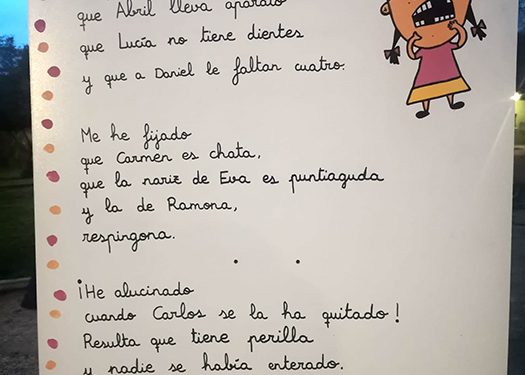 que Abril lleva aparato
que Lucía no tiene dientes
y que a Daniel le faltan cuatro.
Me he fijado
que Carmen es chata,
que la nariz de Eva es puntiaguda
y la de Ramona,
respingona.
¡He alucinado
cuando Carlos se la ha quitado!
Resulta que tiene perilla
y nadie se había enterado.